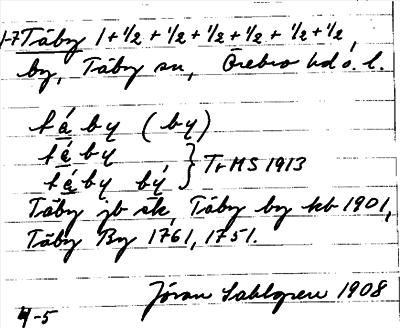 1-7 Täby 1+1/2+1/2+1/2+1/2+1/2+1/2,
by, Täby sn, Örebro hd Ö. l.
tá by (by)
tá by
tá by bý } Tr MS 1913
Täby jb sk, Täby by kb 1901,
Täby By 1761, 1751.
Jöran Sahlgren 1908
4-5